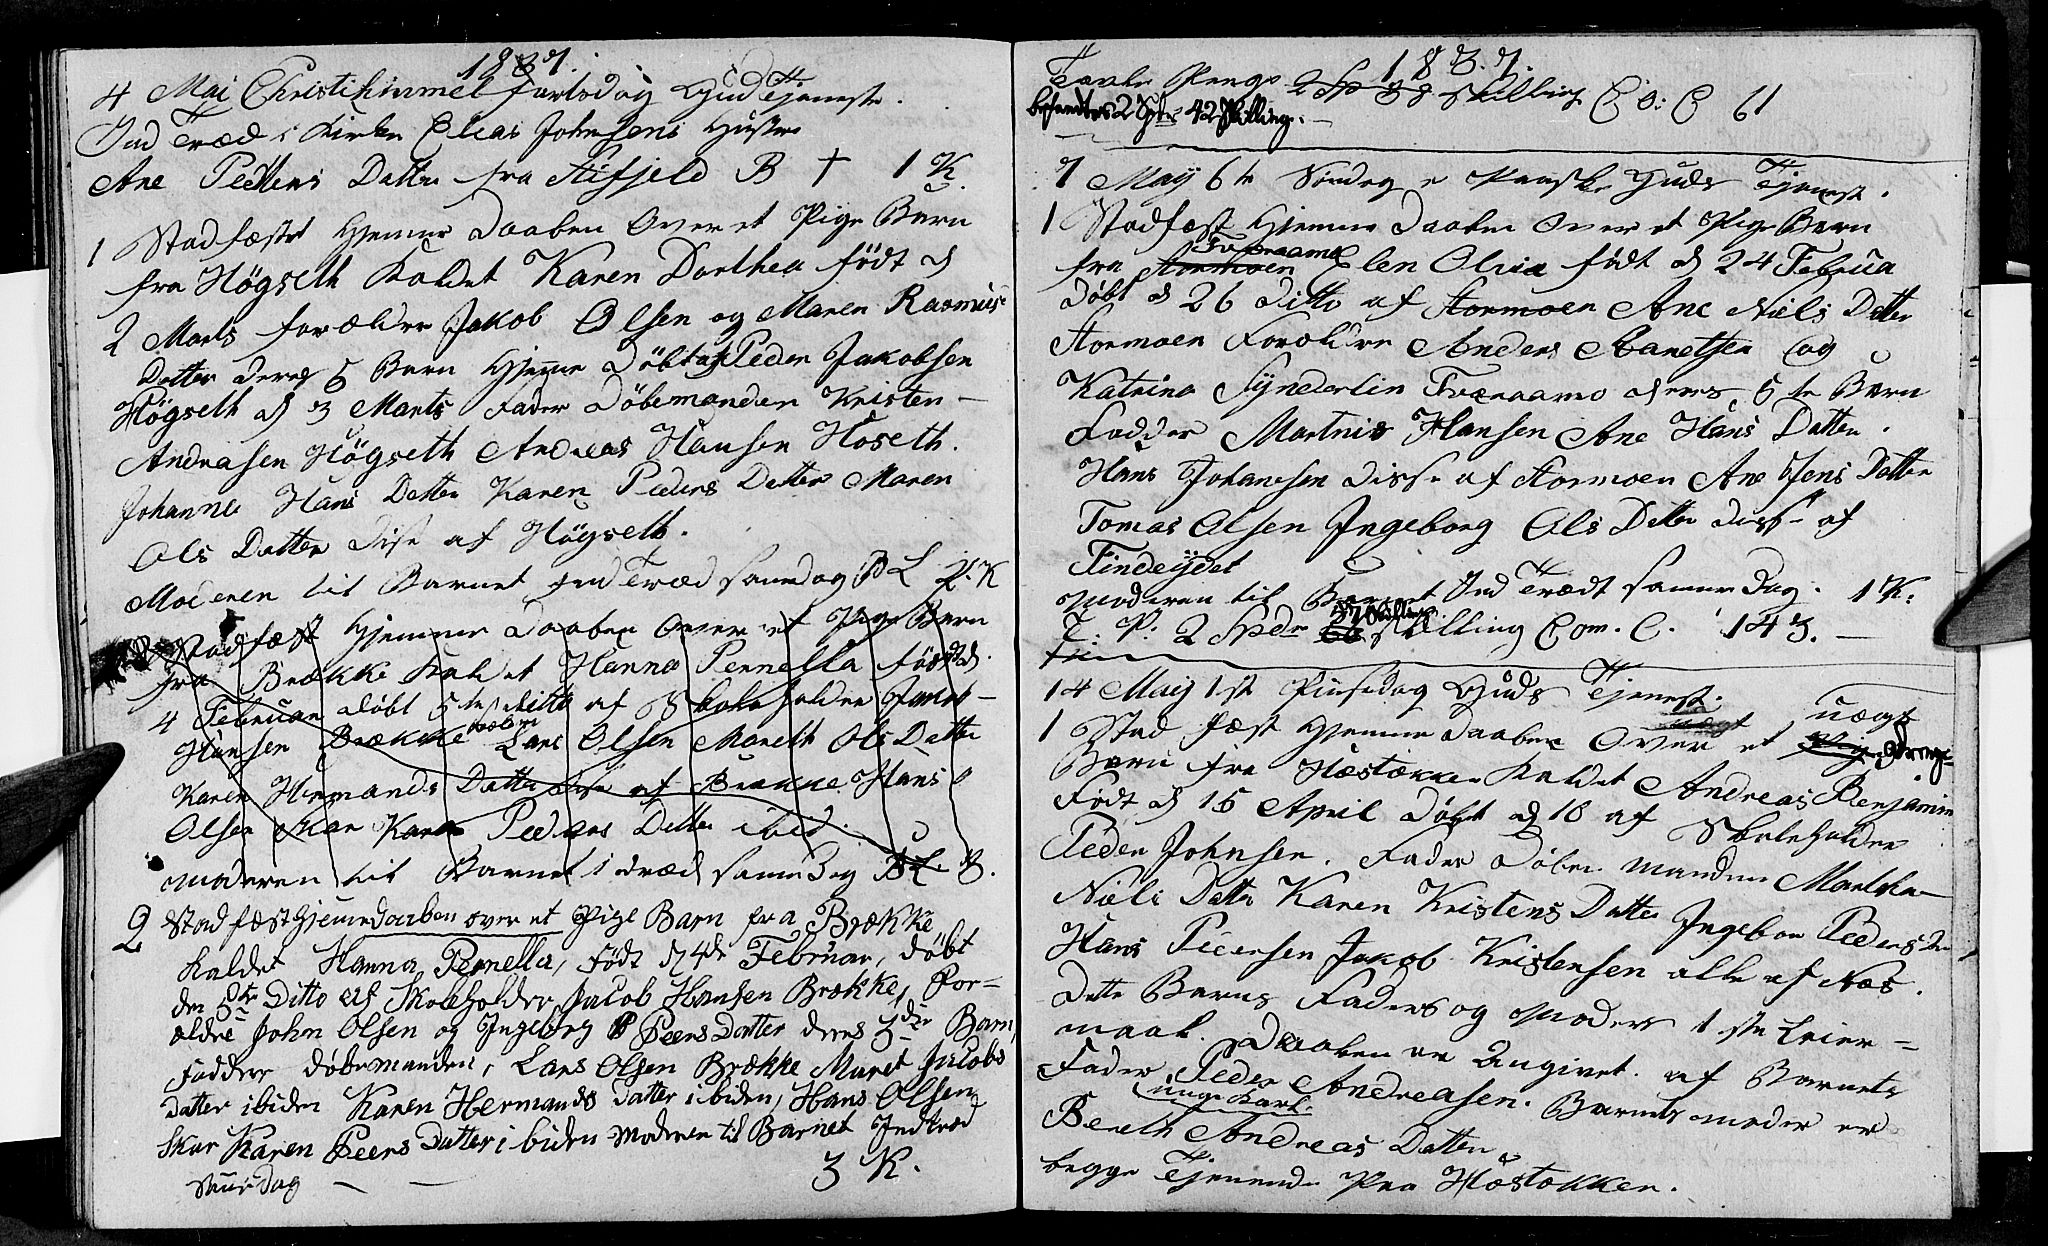 1837.
4 Mai Christihimmelfartsdag Gud Tjeneste.
Ind Træd i Kirken Elias Johnsens Hustro
Ane Peders Datter fra Alfjeld B † 1 K.
1 Stadfæstet Hjemme Daaben Over et Pige Barn
fra Högseth Kaldet Karen Dorthea födt d
2 Marts forældre Jakob Olsen og Maren Rasmus
Datter deres 5 Barn Hjemme Döbt af Peder Jakobsen
Högseth d 3 Marts Fader Döbemanden Kristen
Andrasen Högseth Andreas Hansen Hoseth.
Johanna Hans Datter Karen Peders Datter Maren
Ols Datter disse af Högseth.
Moderen til Barnet Ind Træd samedag B L 2. K
Stadfæst Hjemme Daaben Over et Pige Barn
fra Brække Kaldet Hanna Pernella födt d.
4 Februar döbt 5te ditto af Skoleholder Jacob
Hansen Brække Lars Olsen Mareth Ols Datter
Karen Hermands Datter disse af Brække Hans
Olsen Skar Karen Peders Datter ibid.
moderen til Barnet i træd same Dag
2 Stadfæst Hjemedaaben over et Pige Barn fra Brække
kaldet Hanna Pernella, Födt d 4de Februar, döbt
den 5te Ditto af Skoleholder Jacob Hansen Brække, For-
ældre John Olsen og Ingebörg Peers Datter deres 3die Barn,
Faddere döbemanden, Lars Olsen Brække Maret Jacobs
datter ibiden Karen Hermands Datter ibiden, Hans Olsen
Skar Karen Peers Datter ibiden Moderen til Barnet Indtræd
samedag — — 3 K.
1837.
Tavle Penge 2 Sp 38 Skilling C o: C 61
befandtes 2 Spdr 42 Skilling. —
7 May 6te Söndag e Paaske Guds Tjenest.
1 Stadfæst Hjemme Daaben Over et Pige Barn
fra Stormoen Tveraamo Elen Olvia födt d 24 Februa
döbt d 26 ditto af Stormoen Ane Niels Datter
Stormoen Forældre Anders Aanetsen og
Katrina Synderlin Tværaamo deres 5te Barn
Fadder Martnis Hansen Ane Hans Datter.
Hans Johanesen disse af Stormoen Ane Jens Datter
Tomas Olsen Ingeborg Ols Datter disse af
Findejdet
Moderen til Barnet Ind Trædt samme Dag. 1 K.
T. P. 2 Spdr Skilling Com. C. 143. —
14 Maij 1st Pinsedag Guds Tjenest.
1 Stad fæst Hjemme Daaben Over et uægt Drenge
Barn fra Hæstækken Kaldet Andreas Benjamin
Födt d 15 April Döbt d 18 af Skoleholder
Peder Johnsen. Fader Döbe manden Martha
Niels Datter Karen Kristens Datter Ingebor Peders Da
Hans Pedersen Jakob Kristensen alle af Næs.
Dette Barns Faders og Moders 1ste Leier-
maal. Daaben er Angivet af Barnets
Fader Peder Andreasen. Barnets moder er
unge Karl.
Bereth Andreas Datter
begge Tjenende Paa Höstokken.